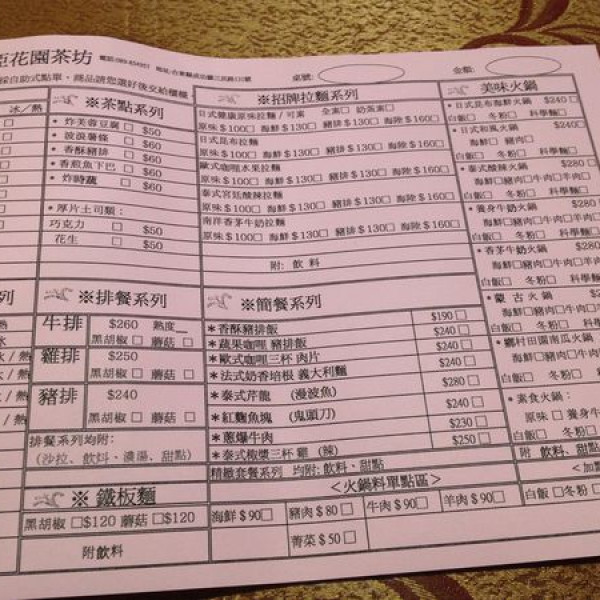 花園茶坊
桌號: 金額:
採自助式點單、商品請您選好後交給櫃檯
冰/熱
※茶點系列
・炸芙蓉豆腐 □ $50
・波浪薯條 □ $60
・香酥豬排 □ $60
・香煎魚下巴 □ $60
・炸時蔬 □ $60
・厚片土司類:
巧克力 □ $50
花生 □ $50
※招牌拉麵系列
日式健康原味拉麵/可素 全素□ 奶蛋素□
原味$100□ 海鮮$130□ 豬排$130□ 海陸$160□
日式昆布拉麵
原味$100□ 海鮮$130□ 豬排$130□ 海陸$160□
歐式咖哩水果拉麵
原味$100□ 海鮮$130□ 豬排$130□ 海陸$160□
泰式宮廷酸辣拉麵
原味$100□ 海鮮$130□ 豬排$130□ 海陸$160□
南洋香茅牛奶拉麵
原味$100□ 海鮮$130□ 豬排$130□ 海陸$160□
附: 飲料
美味火鍋
・日式昆布海鮮火鍋 $240□
白飯□ 冬粉□ 科學麵□
・日式和風火鍋 $240□
海鮮□ 豬肉□
白飯□ 冬粉□ 科學麵□
・泰式酸辣火鍋 $280□
海鮮□豬肉□牛肉□羊肉□
白飯□ 冬粉□ 科學麵
・養身牛奶火鍋 $280
海鮮□豬肉□牛肉□羊肉
白飯□ 冬粉□ 科學麵
・香茅牛奶火鍋 $280
海鮮□豬肉□牛肉□羊
白飯□ 冬粉□ 科學
・蒙古火鍋
海鮮□豬肉□牛肉□
白飯□ 冬粉□ 科
・鄉村田園南瓜火鍋
海鮮□豬肉□牛肉
白飯□ 冬粉□
・素食火鍋:
原味□ 養身牛
白飯□ 冬粉□
附 飲料、甜點
※排餐系列
牛排 $260 熟度_
黑胡椒□ 蘑菇□
雞排 $250
黑胡椒□ 蘑菇□
豬排 $240
黑胡椒□ 蘑菇□
排餐系列均附:
(沙拉、飲料、濃湯、甜點)
※簡餐系列
*香酥豬排飯 $190□
*蔬果咖哩 豬排飯 $240□
*歐式咖哩三杯 肉片 $240□
*法式奶香培根 義大利麵 $240□
*泰式芹龍 (漫波魚) $280□
*紅麴魚塊 (鬼頭刀) $240□
*蔥爆牛肉 $230□
*泰式椒漿三杯 雞 (辣) $250□
精緻套餐系列 均附: 飲料、甜點
※鐵板麵
黑胡椒 □$120 蘑菇□$120
附飲料
<火鍋料單點區>
海鮮$90□ 豬肉$80□ 牛肉$90□ 羊肉$90□
菁菜$50□
<加
白飯□冬粉□